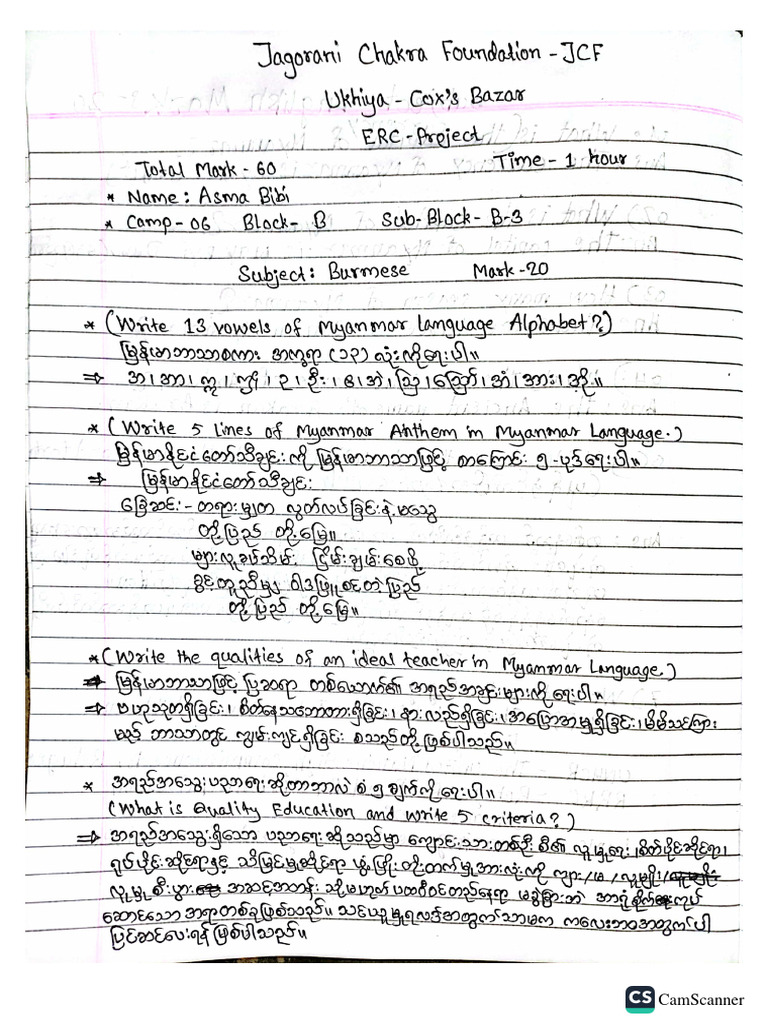 Jagorani Chakra Foundation - JCF
Ukhiya - Cox's Bazar
ERC - Project
Total Mark - 60 Time - 1 hour
* Name : Asma Bibi
* Camp - 06 Block - B Sub-Block - B-3
Subject : Burmese Mark - 20
* (Write 13 vowels of Myanmar Language Alphabet?)
မြန်မာဘာသာစကား အက္ခရာ (၁၃) လုံးကိုရေးပါ။
⇒ အ၊ အာ၊ ဣ၊ ဤ၊ ဥ၊ ဦး၊ ဧ၊ အဲ၊ ဩ၊ ဪ၊ အံ၊ အား၊ အို။
* (Write 5 lines of Myanmar Anthem in Myanmar Language.)
မြန်မာနိုင်ငံတော်သီချင်းကို မြန်မာဘာသာဖြင့် စာကြောင်း ၅-ပုဒ်ရေးပါ။
⇒ မြန်မာနိုင်ငံတော်သီချင်း
ခြေဆင်း - တရားမျှတ လွတ်လပ်ခြင်းနဲ့မသွေ
တို့ပြည် တို့မြေ။
များလူခပ်သိမ်း ငြိမ်းချမ်းစေဖို့
ခွင့်တူညီမျှ ဝါဒဖြူစင်တဲ့ပြည်
တို့ပြည် တို့မြေ။
* (Write the qualities of an ideal teacher in Myanmar Language.)
⇒ မြန်မာဘာသာဖြင့် ပြဆရာ တစ်ယောက်၏ အရည်အချင်းများကိုရေးပါ။
⇒ ဗဟုသုတရှိခြင်း၊ စိတ်နေသဘောထားရှိခြင်း၊ နားလည်ရှိခြင်း၊ အပြောအမူရှိခြင်း၊ မိမိသင်ကြား
မည် ဘာသာတွင် ကျွမ်းကျင်ရှိခြင်း စသည်တို့ဖြစ်ပါသည်။
* အရည်အသွေးပညာရေးဆိုတာဘာလဲ စံ ၅ ချက်ကိုရေးပါ။
(What is Quality Education and Write 5 criteria?)
⇒ အရည်အသွေးရှိသော ပညာရေးဆိုသည်မှာ ကျောင်းသားတစ်ဦးစီ၏ လူမှုရေး၊ စိတ်ပိုင်းဆိုင်ရာ၊
ရုပ်ပိုင်းဆိုင်ရာနှင့် သိမြင်မှုဆိုင်ရာ ဖွံ့ဖြိုးတိုးတက်မှုအားလုံးကို ကျား/မ/လူမျိုး/
လူမှုစီးပွား အဆင့်အတန်း သို့မဟုတ် ပထဝီဝင်တည်နေရာ မခွဲခြားဘဲ အာရုံစိုက်လုပ်
ဆောင်သောအရာတစ်ခုဖြစ်သည်။ သင်ယူမှုရလဒ်အတွက်သာမက ကလေးဘဝအတွက်ပါ
ပြင်ဆင်ပေးရန်ဖြစ်ပါသည်။
CS CamScanner